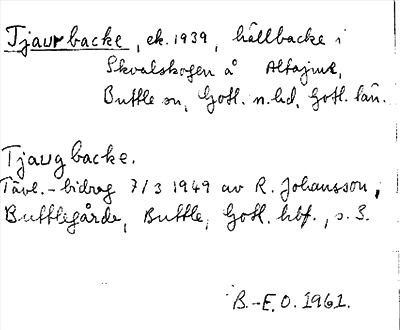 Tjaurbacke, ek. 1939, hällbacke i
Skvalskogen å
Buttle sn, Gotl. n. hd, Gotl. län.
Tjaugbacke.
Tävl.-bidrag 7/3 1949 av R. Johansson,
Buttlegårde, Buttle, Gotl. hbf., s. 3.
B.-E.O. 1961.